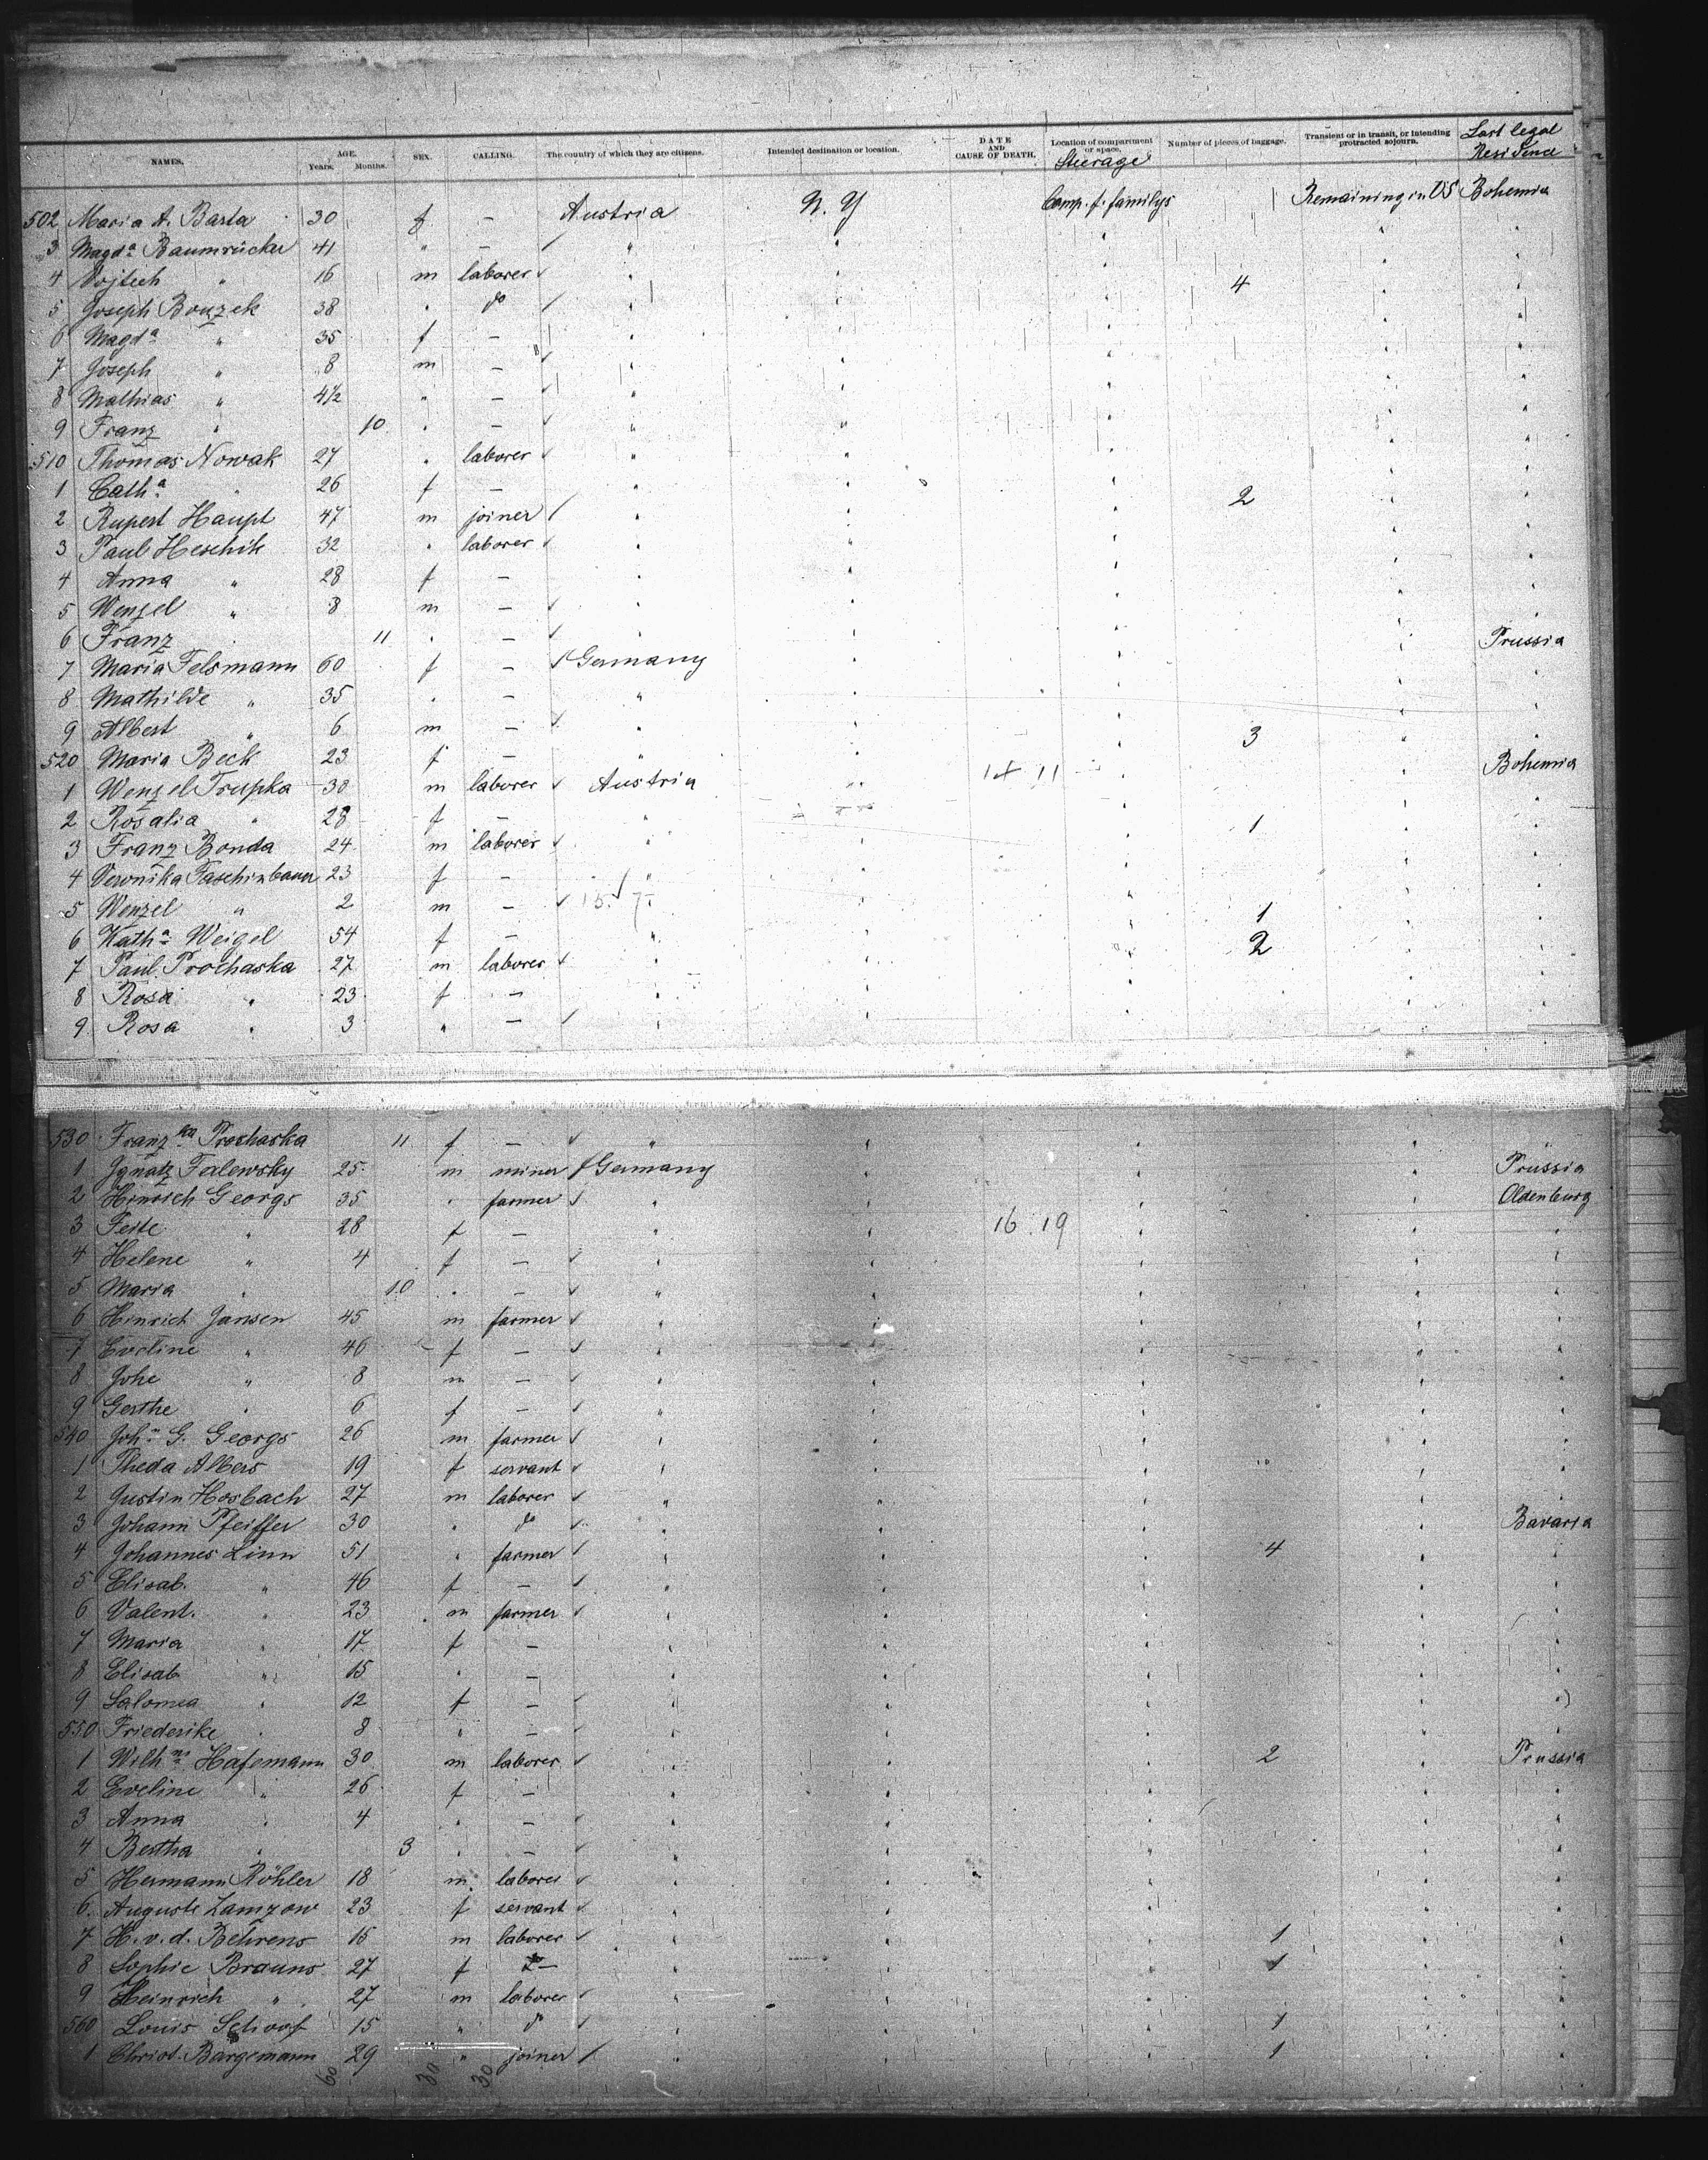 NAMES. AGE. Years. Months. SEX. CALLING. The country of which they are citizens. Intended destination or location. DATE AND CAUSE OF DEATH. Location of compartment or space. Number of pieces of baggage. Transient or in transit, or intending protracted sojourn. Last legal Residence
Steerage
502 Maria A. Barta 30 f — Austria N. Y Comp. f. familys Remaining in US Bohemia
3 Magdᵃ Baumrücker 41 " —
4 Vojtech " 16 m laborer 4
5 Joseph Bouzek 38 " do
6 Magdᵃ " 35 f —
7 Joseph " 8 m —
8 Mathias " 4½ " —
9 Franz " 10 " —
510 Thomas Nowak 27 " laborer
1 Cathᵃ " 26 f —
2 Rupert Haupt 47 m joiner 2
3 Paul Heschik 32 " laborer
4 Anna " 28 f —
5 Wenzel " 8 m —
6 Franz " 11 " —
7 Maria Felsmann 60 f — Germany Prussia
8 Mathilde " 35 " —
9 Albert " 6 m —
520 Maria Beck 23 f — 3
1 Wenzel Trupka 30 m laborer Austria Bohemia
2 Rosalia " 28 f —
3 Franz Bonda 24 m laborer 1
4 Veronika Faschinbauer 23 f —
5 Wenzel " 2 m —
6 Kathᵃ Weigel 54 f — 1
7 Paul Prochaska 27 m laborer 2
8 Rosa " 23 f —
9 Rosa " 3 " —
530 Franzᵏᵃ Prochaska 11 f — "
1 Ignatz Falewsky 25 m miner Germany Prussia
2 Hinrich Georgs 35 " farmer Oldenburg
3 Feite " 28 f — 16 19
4 Helene " 4 f —
5 Maria " 10 " —
6 Hinrich Jansen 45 m farmer
7 Eveline " 46 f —
8 Johe " 8 m —
9 Gerthe " 6 f —
540 Johⁿ G. Georgs 26 m farmer
1 Theda Albers 19 f servant
2 Justin Hosbach 27 m laborer
3 Johann Pfeiffer 30 " do Bavaria
4 Johannes Linn 51 " farmer 4
5 Elisab. " 46 f —
6 Valent. " 23 m farmer
7 Maria " 17 f —
8 Elisab " 15 " —
9 Salomea " 12 f —
550 Friederike " 8 " —
1 Wilhᵐ Hafemann 30 m laborer 2 Prussia
2 Eveline " 26 f —
3 Anna " 4 " —
4 Bertha " 3 " —
5 Hermann Köhler 18 m laborer
6 Auguste Lamzow 23 f servant
7 H. v. d. Behrens 15 m laborer 1
8 Sophie Brauns 27 f — 1
9 Heinrich " 27 m laborer
560 Louis Schoof 15 " do 1
1 Christ. Bargemann 29 " joiner 1
60 30 30